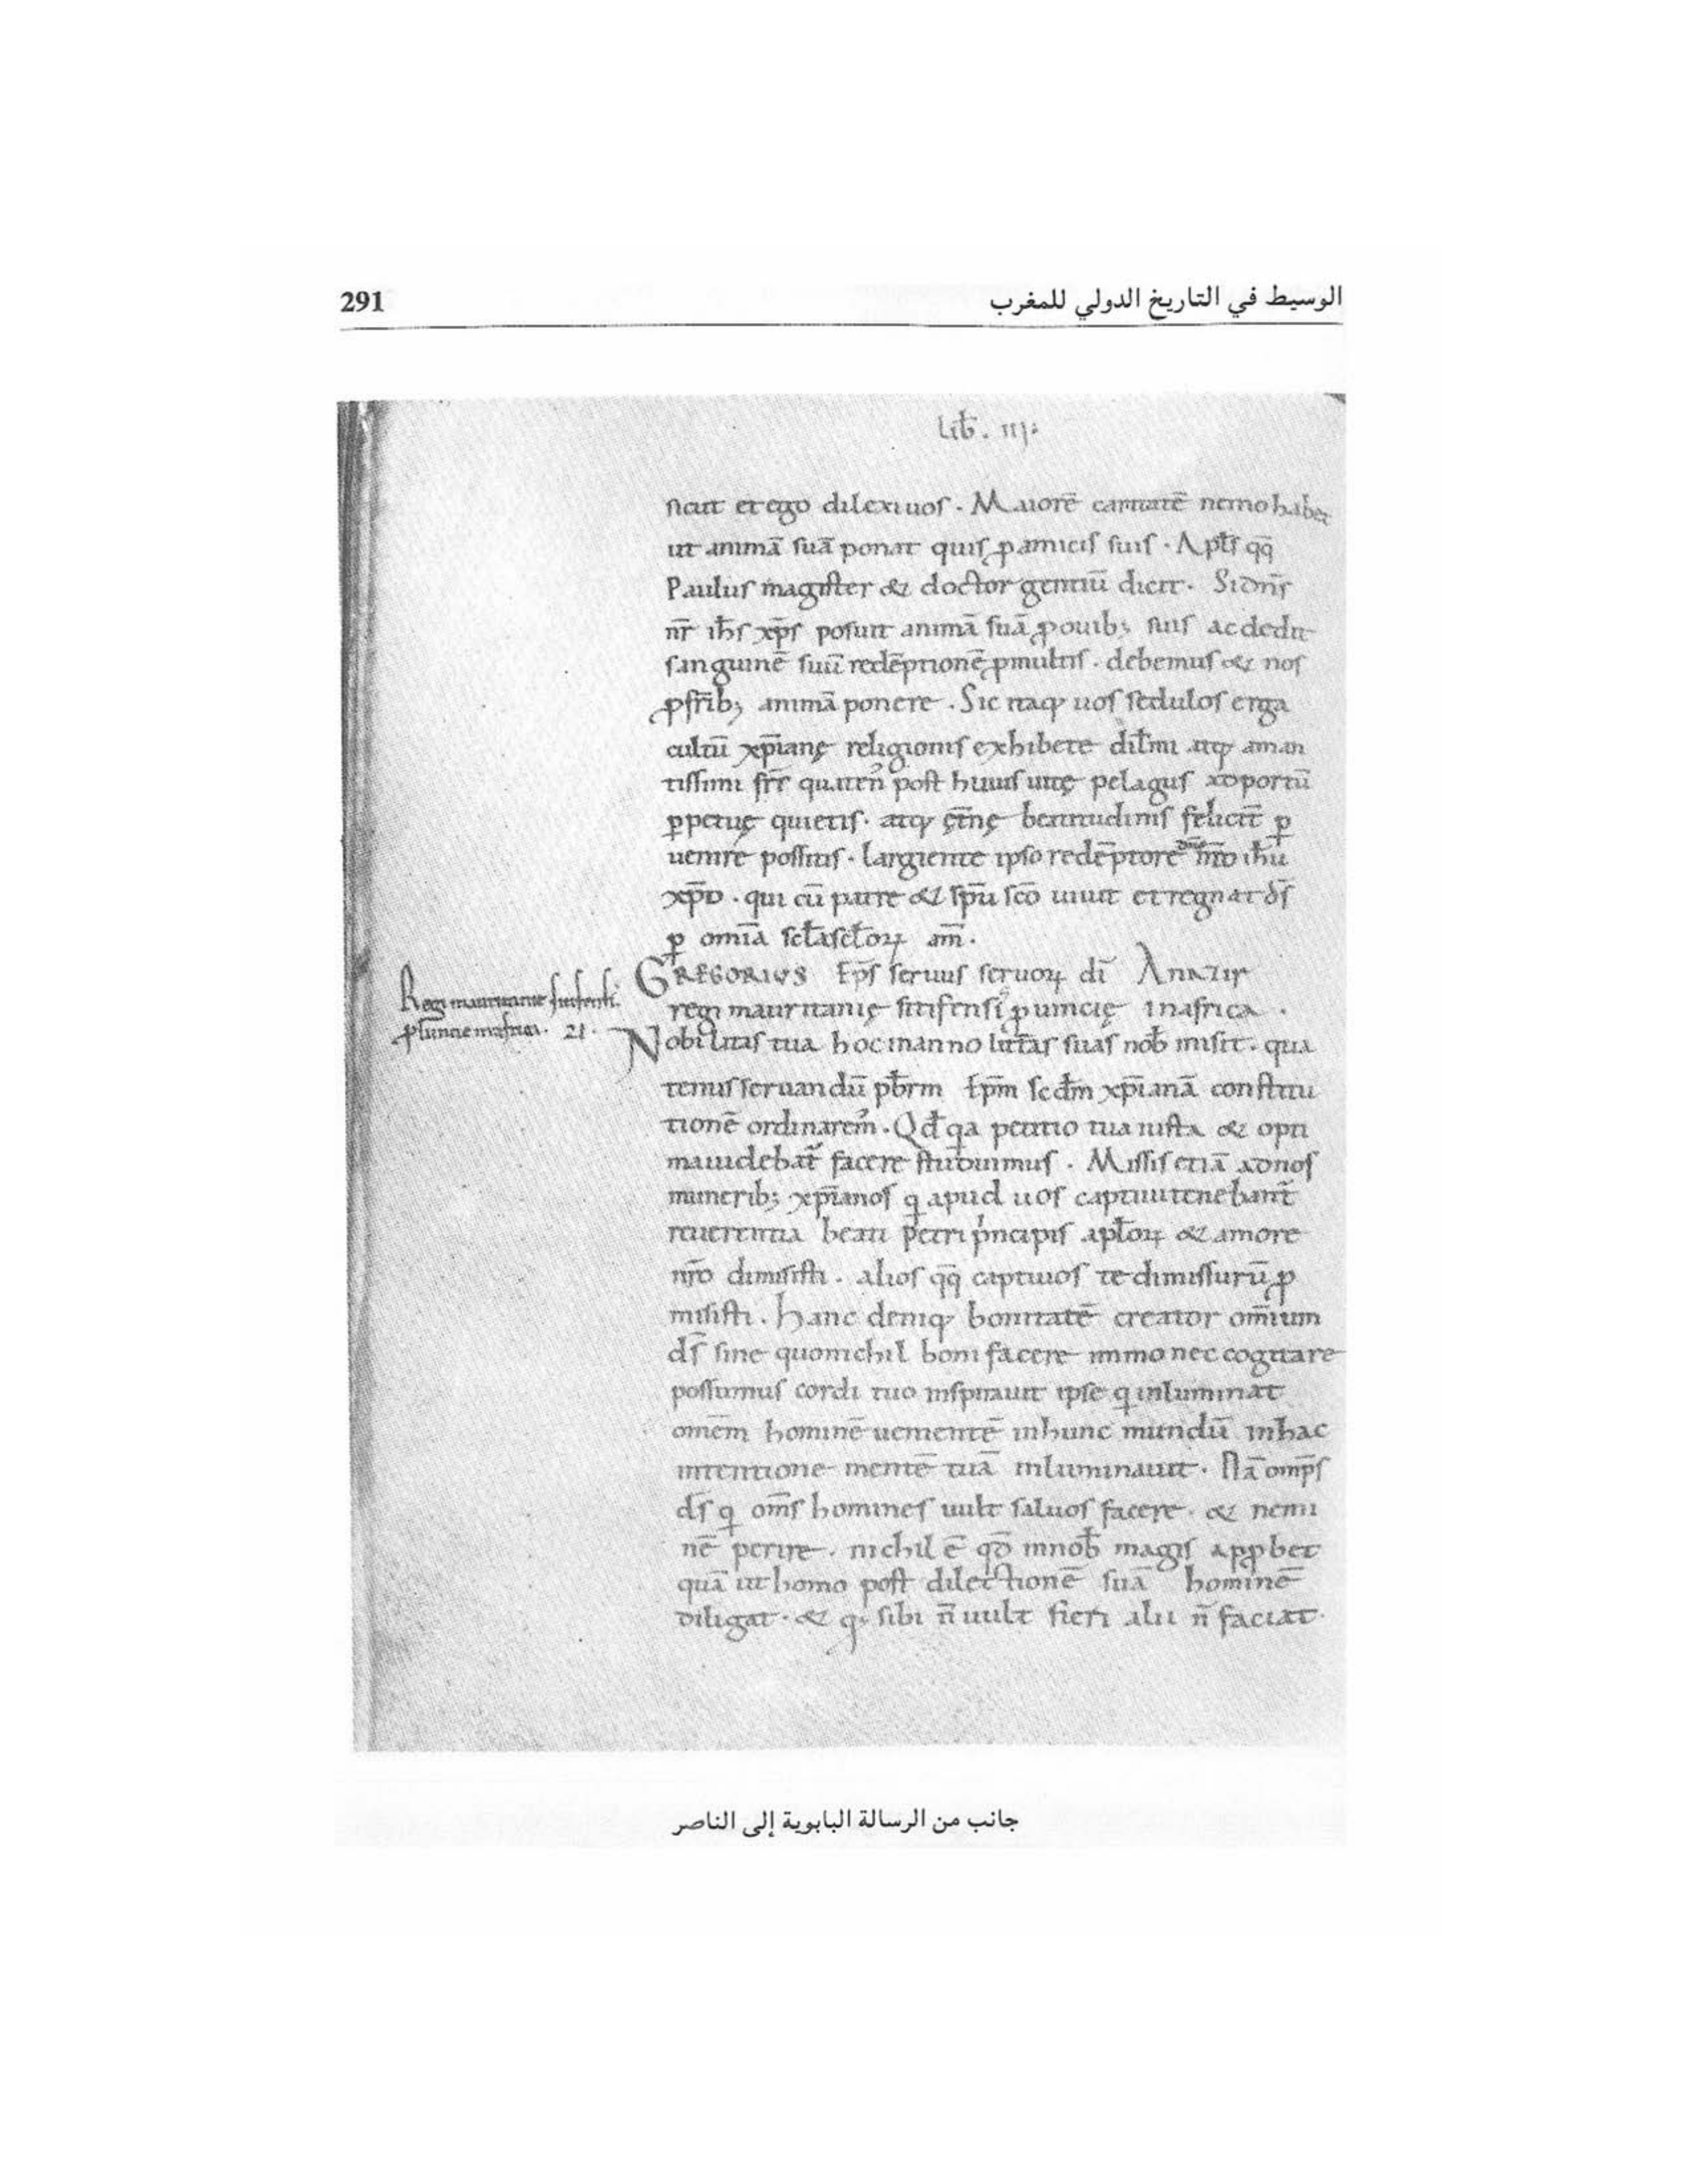 الوسيط في التاريخ الدولي للمغرب
291
Lib̄. III:
sicut et ego dilexi uos. Maiorē caritatē nemo habet
ut animā suā ponat quis ꝓ amicis suis. Apl̄s qq̄
Paulus magister & doctor gentiū dicit. Si dn̄s
nr̄ ih̄s xp̄s posuit animā suā ꝓ ouib; suis ac dedit
sanguinē suū redēptionē ꝓ multis. debemus & nos
ꝓ fr̄ib; animā ponere. Sic itaq; uos sedulos erga
cultū xp̄ianę religionis exhibete dil̄mi atq; aman
tissimi fr̄s quaten' post huius uitę pelagus ad portū
ꝑpetuę quietis. atq; ęt̄nę beatitudinis felicit̄ ꝑ
uenire possitis. largiente ipso redēptore dn̄o nr̄o ih̄u
xp̄o. qui cū patre & sp̄u sc̄o uiuit et regnat ds̄
ꝑ om̄ia sc̄la sc̄loꝝ am̄.
GREGORIUS Ep̄s seruus seruoꝝ dī Anazir
regi mauritanię sitifensis ꝓuincię in africa.
Regi mauritanie sitifensis
ꝓuincie in africa. 21.
Nobilitas tua hoc in anno litt̄as suas nob̄ misit. qua
tenus seruandū pb̄rm ep̄m sc̄dm xp̄ianā constitu
tionē ordinarem'. Qd̄ qa petitio tua iusta & opti
ma uidebat̄ facere studuimus. Missis etiā ad nos
munerib; xp̄ianos q apud uos captiui tenebant̄
reuerentia beati petri p'ncipis apl̄oꝝ & amore
nr̄o dimisisti. alios qq̄ captiuos te dimissurū ꝓ
misisti. Hanc deniq; bonitatē creator om̄ium
ds̄ sine quo nichil boni facere immo nec cogitare
possumus cordi tuo inspirauit ipse q inluminat
om̄em hominē uenientē in hunc mundū in hac
intentione mentē tuā inluminauit. Nā omp̄s
ds̄ q om̄s homines uult saluos facere. & nemi
nē perire. nichil ē qd̄ in nob̄ magis appꝓbet
quā ut homo post dilectionē suā hominē
diligat. & q; sibi n̄ uult fieri alii n̄ faciat.
جانب من الرسالة البابوية إلى الناصر